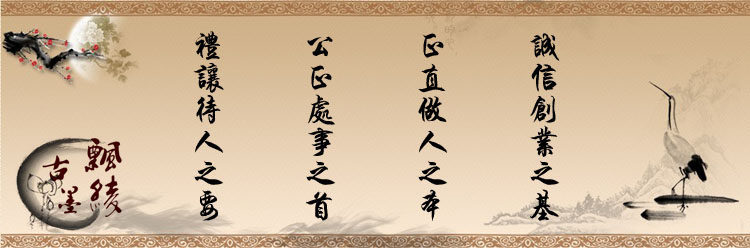 誠信創業之基
正直做人之本
公正處事之首
禮讓待人之要
飄綾
古墨